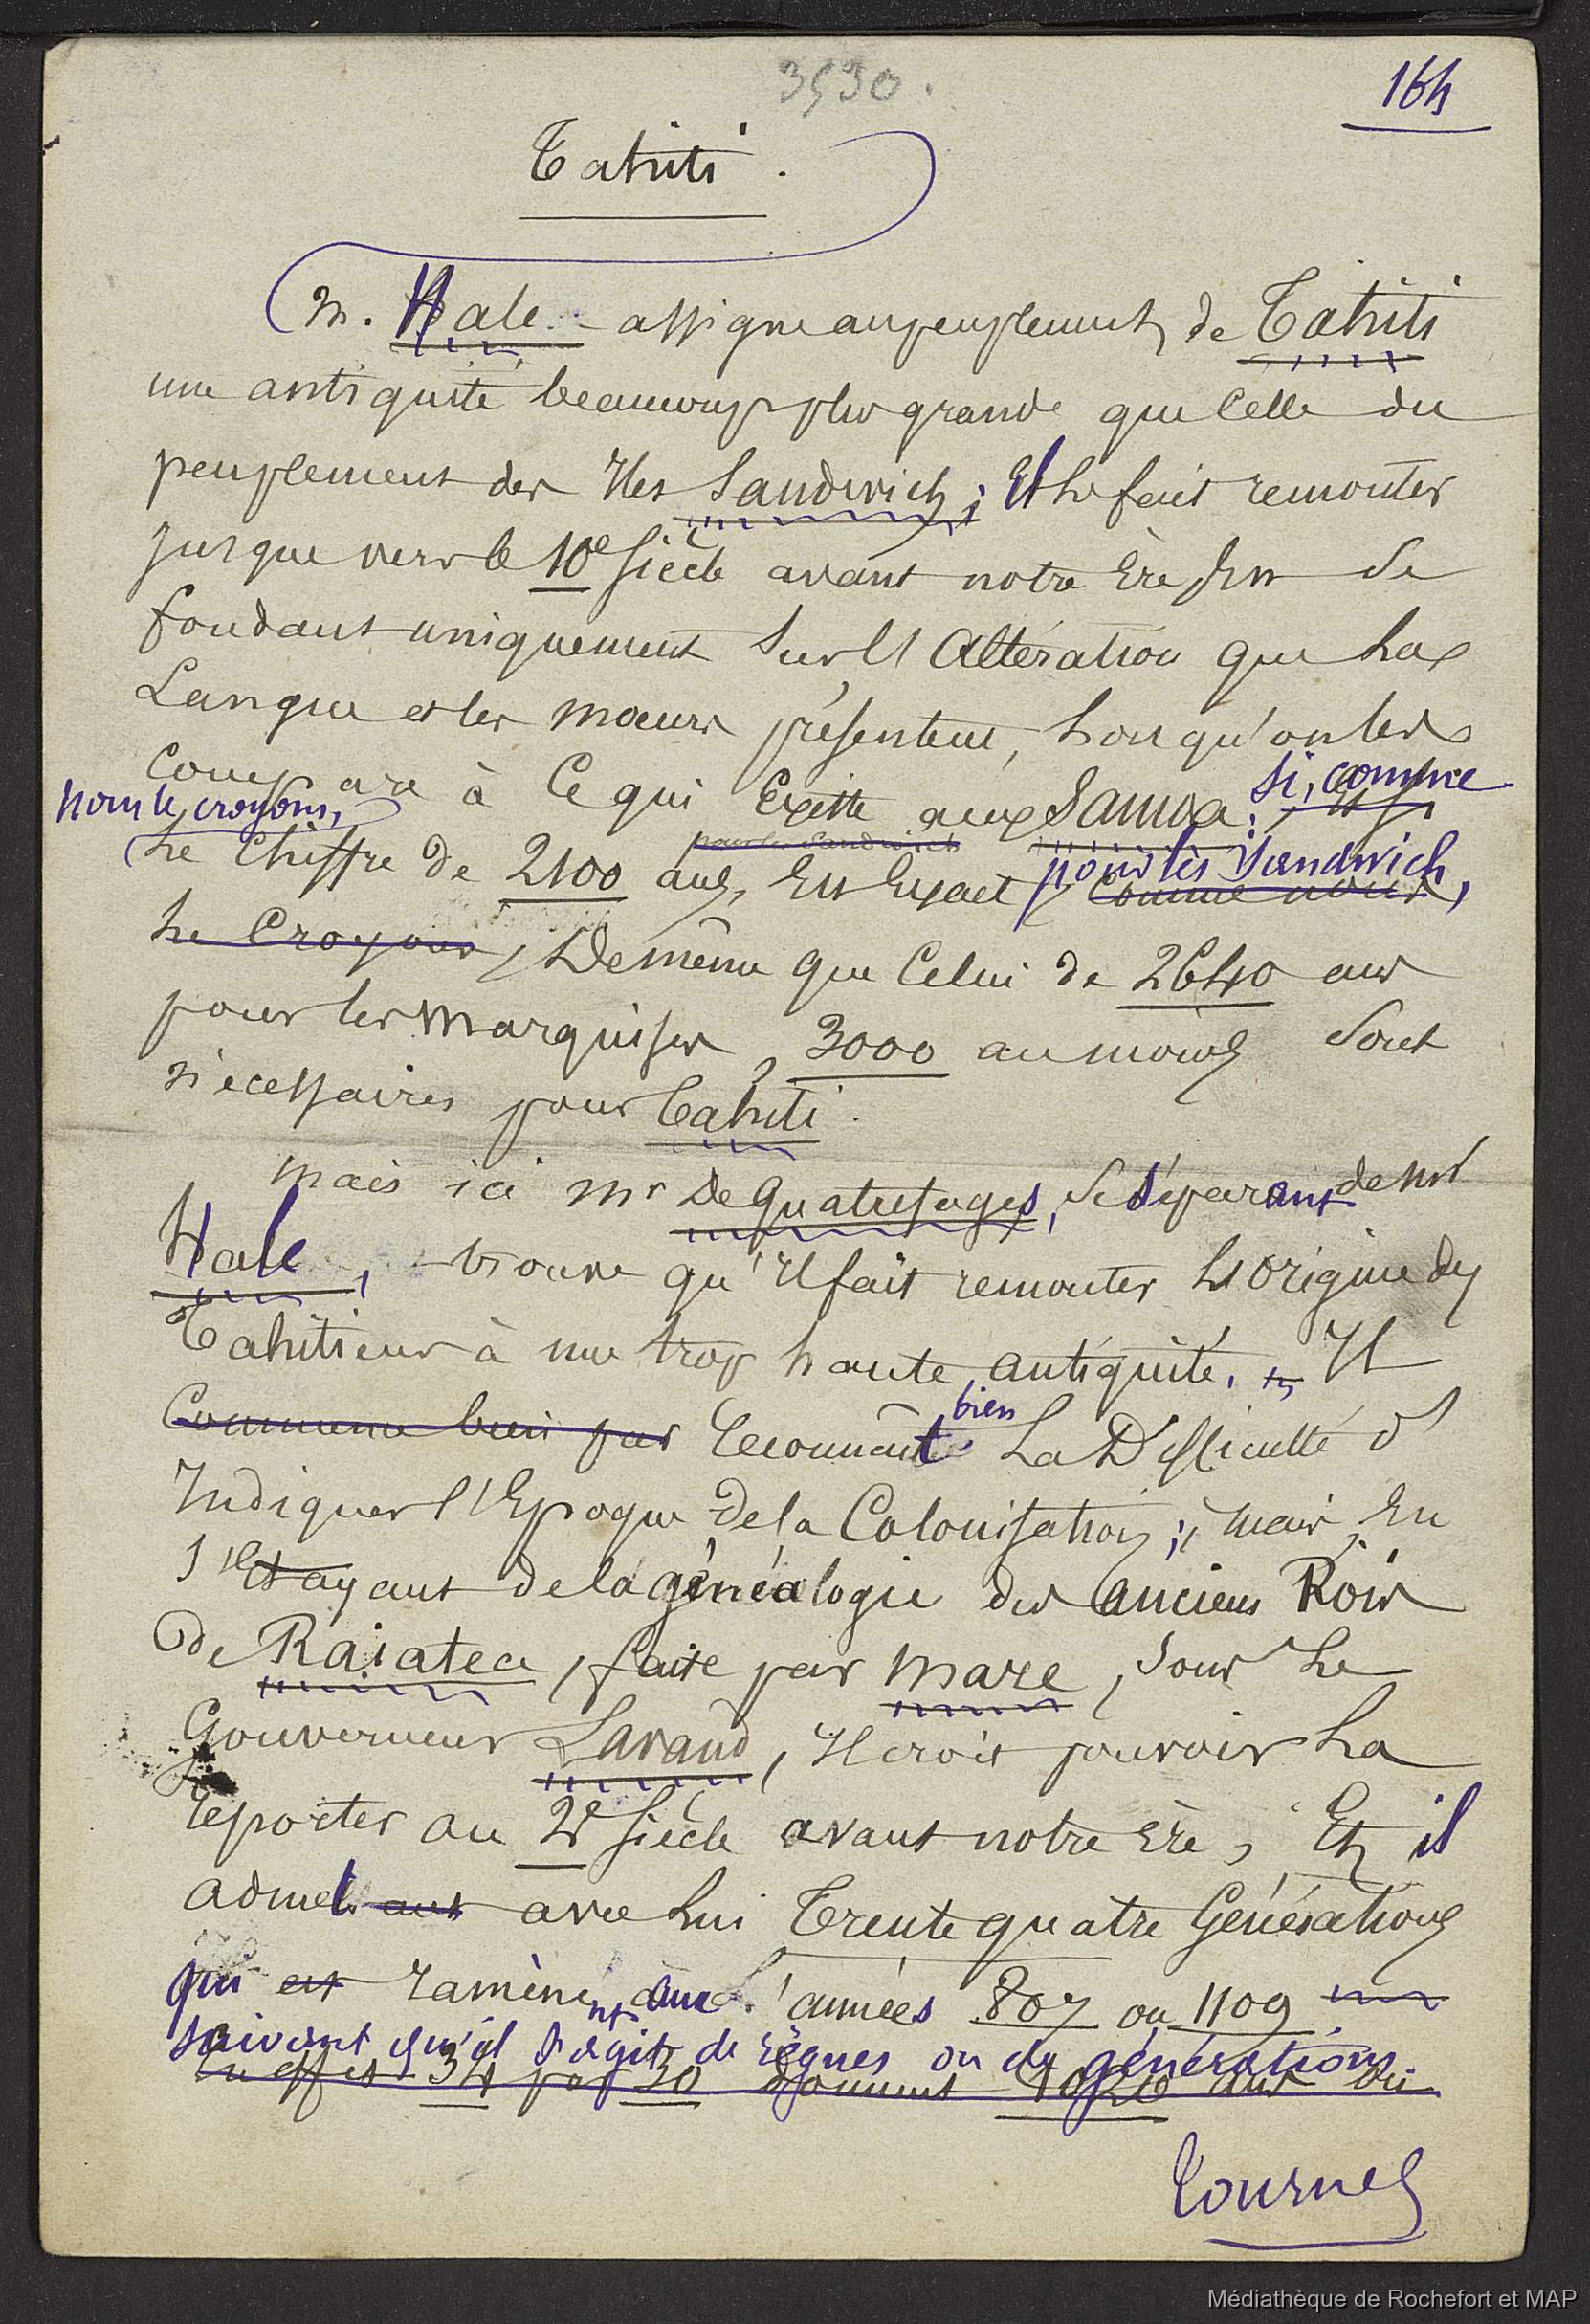 3530.
164
Tahiti.
M. Hale assigne au peuplement de Tahiti
une antiquité beaucoup plus grande que Celle du
peuplement des Iles Sandwich; Il le fait remonter
jusque vers le 10e Siècle avant notre Ère En Se
fondant uniquement Sur l'Altération que La
Langue et les mœurs présentent, Lorsqu'on les
Compare à Ce qui Existe aux Samoa. si, comme
nous le croyons,
pour les Sandwich
Le Chiffre de 2100 ans, Est Exact pour les Sandwich, Comme nous
Le Croyons, De même que Celui de 2640 ans
pour les Marquises, 3000 au moins Sont
nécessaires pour Tahiti.
Mais ici Mr De Quatrefages, Se Séparant de Mr
Hale, trouve qu'Il fait remonter L'origine des
Tahitiens à une trop haute antiquité. Il
Commence bien par Reconnaît bien La Difficulté d'
Indiquer l'Epoque de la Colonisation; mais, En
S'Etayant de la généalogie des anciens Rois
de Raiatea, faite par Mare, Sous Le
Gouverneur Lavaud, Il croit pouvoir La
reporter au 2e Siècle avant notre Ère, Et il
admet ant avec Lui Trente quatre Générations
qui et ramènent aux années 807 ou 1109
suivant qu'il s'agit de règnes ou de générations.
En effet 34 par 30 donnent 1020 ans ou
Tournez
Médiathèque de Rochefort et MAP